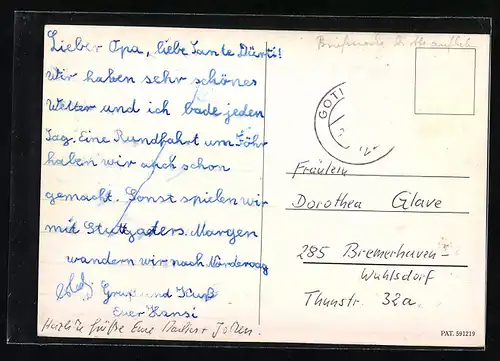 Lieber Opa, liebe Tante Dürti!
Wir haben sehr schönes
Wetter und ich bade jeden
Tag. Eine Rundfahrt um Föhr
haben wir auch schon
gemacht. Sonst spielen wir
mit Morgen
wandern wir nach
Gruß und Kuß
Euer Hansi
Grüße Eure
Briefmarke
GOTI
Fräulein
Dorothea Glave
285 Bremerhaven-
Wuhlsdorf
Thunstr. 32a.
PAT. 591219